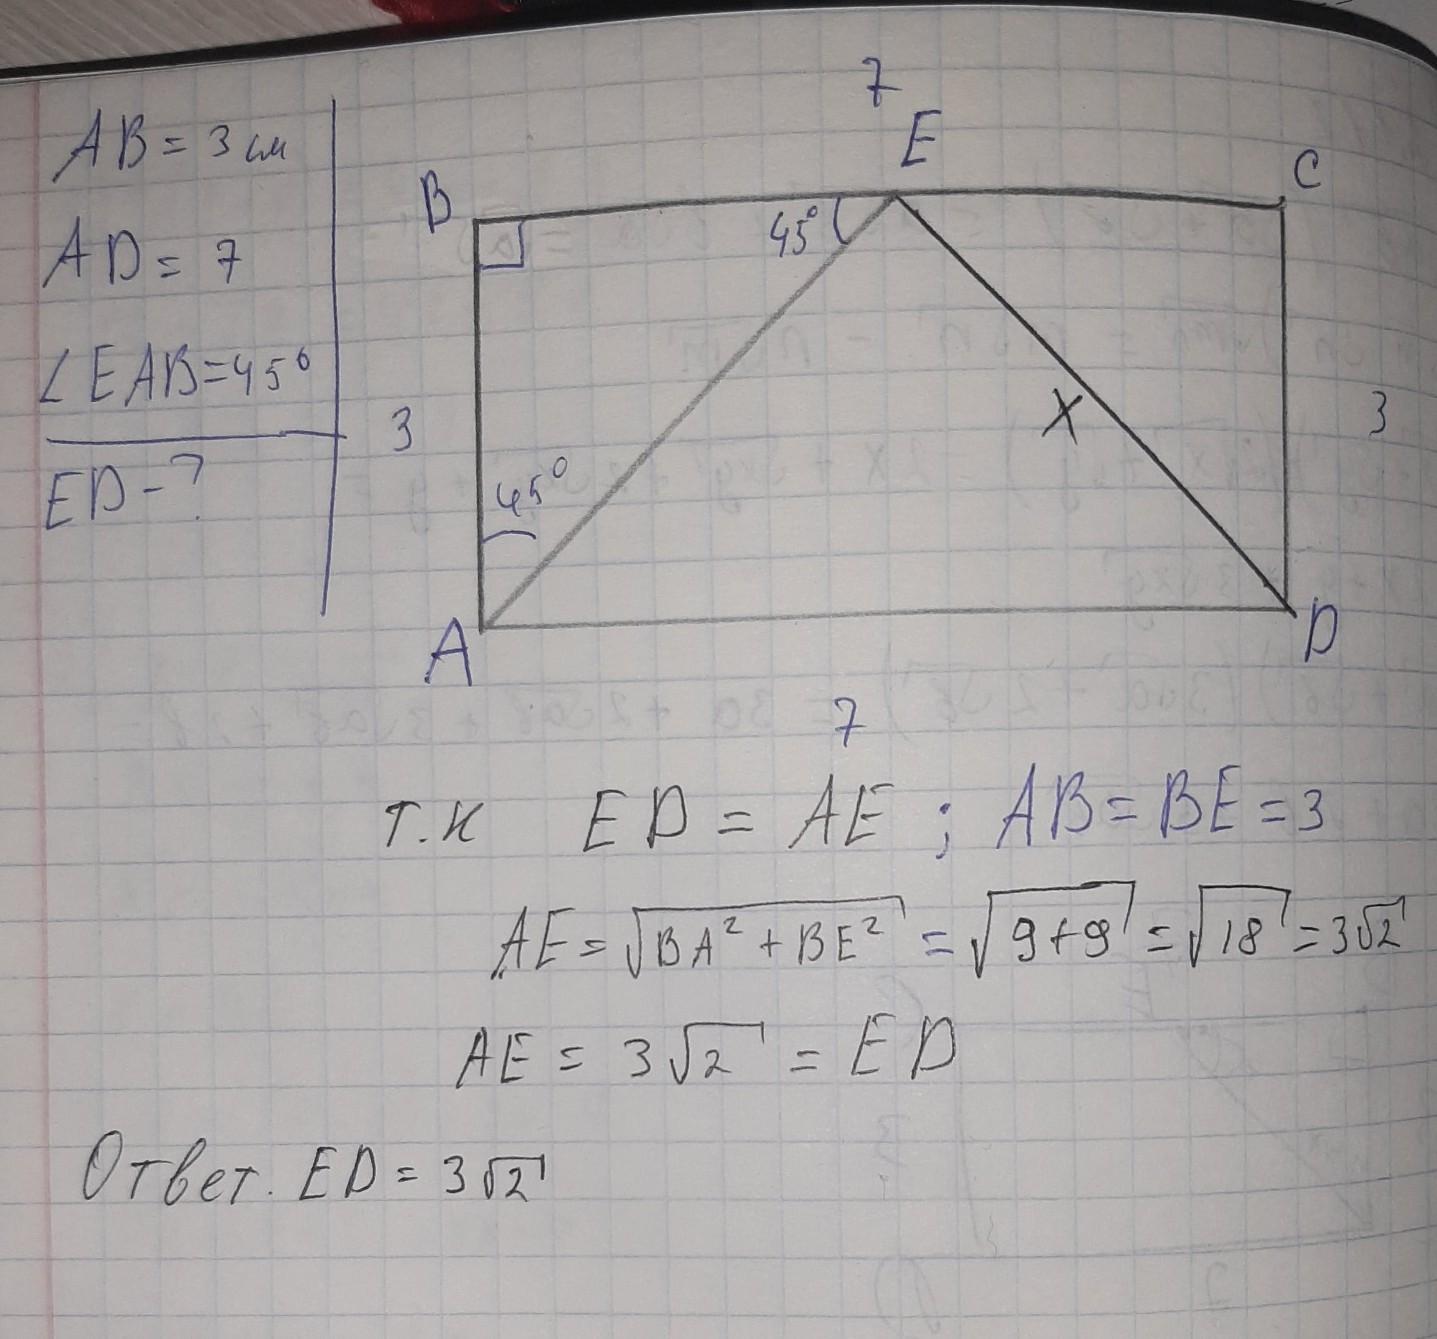 AB = 3 см
AD = 7
∠EAB = 45°
ED - ?
7
E
B
C
45°
3
X
3
45°
A
D
7
т.к ED = AE ; AB = BE = 3
AE = √BA² + BE² = √9+9 = √18 = 3√2
AE = 3√2 = ED
Ответ. ED = 3√2